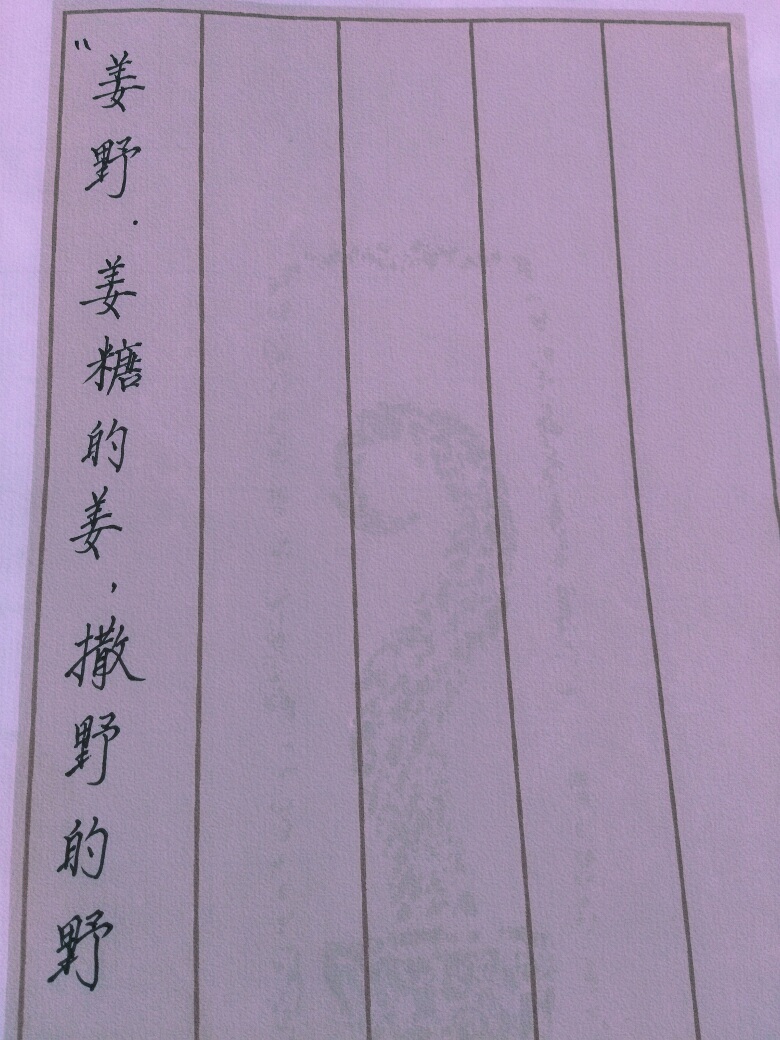 “姜野.姜糖的姜,撒野的野